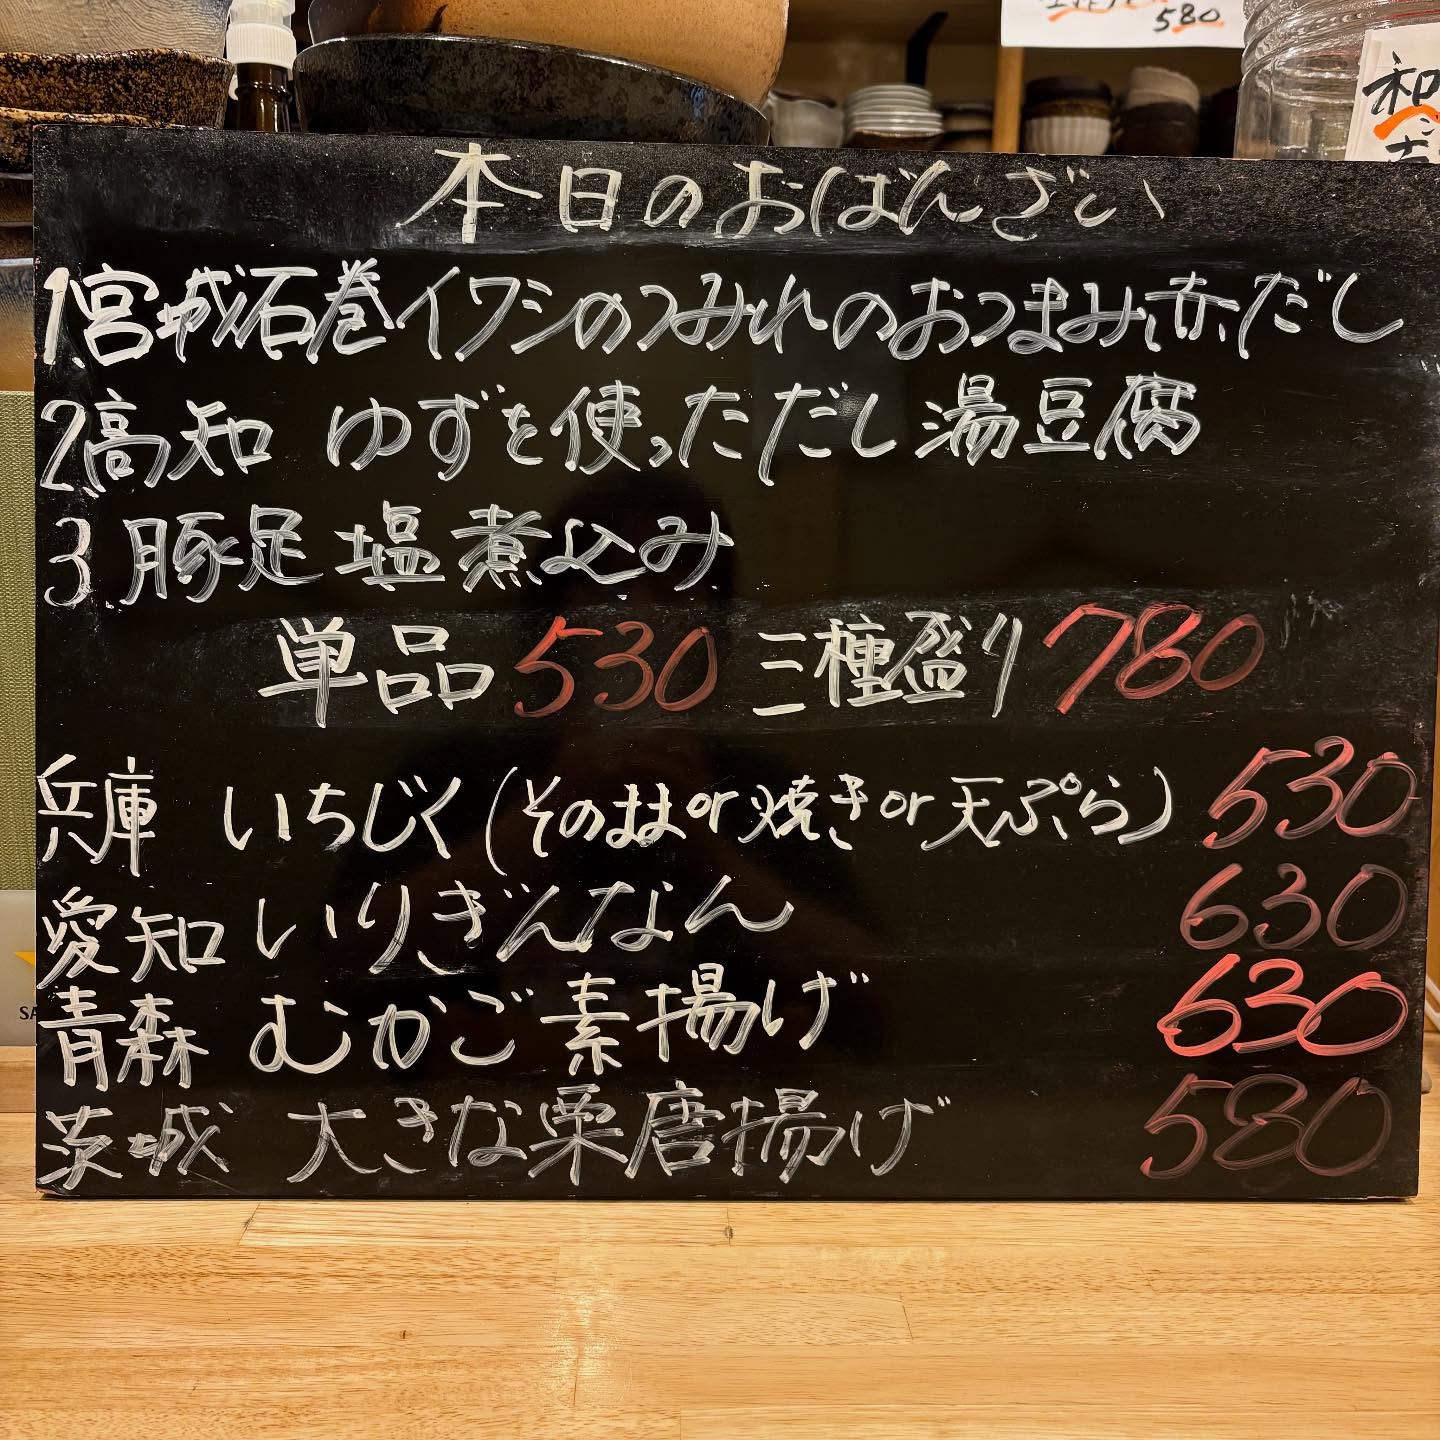 580
和
本日のおばんざい
1.宮城石巻イワシのつみれのおつまみ赤だし
2.高知 ゆずを使っただし湯豆腐
3.豚足 塩煮込み
単品530 三種盛り780
兵庫 いちじく(そのままor焼きor天ぷら) 530
愛知 いりぎんなん 630
青森 むかご素揚げ 630
茨城 大きな栗唐揚げ 580
SA